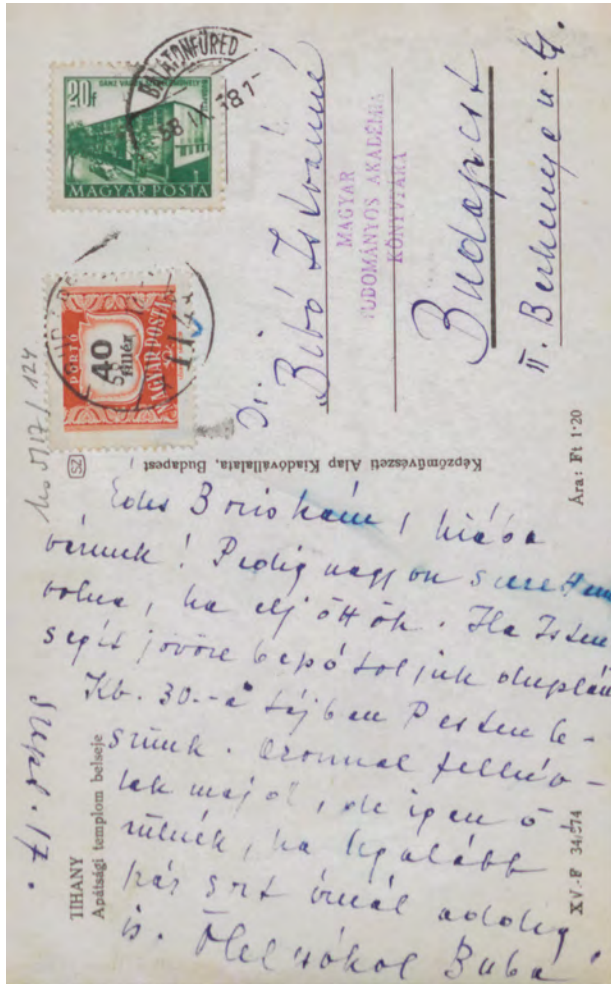 20f
GANZ VA
MAGYAR POSTA
BALATONFÜRED
58 IX
PORTÓ
40
fillér
MAGYAR POSTA
Dr. Bibó Istvánné
MAGYAR
TUDOMÁNYOS AKADÉMIA
KÖNYVTÁRA
Budapest
II. Berkenye u.
124
SZ
Képzőművészeti Alap Kiadóvállalata, Budapest
Ára: Ft 1·20
Szept. 17.
ÉdesBoriskám, hiába
várunk! Pedig nagyon szerettem
volna, ha eljöttök. Ha Isten
segít jövőre bepótoljuk duplán
Kb. 30.-a tájban Pesten le-
szünk. Azonnal felhív-
lak majd, de igen ö-
rülnék, ha legalább
pár sort írnál addig
is. Ölel csókol Buba
TIHANY
Apátsági templom belseje
XV.-F 34/574